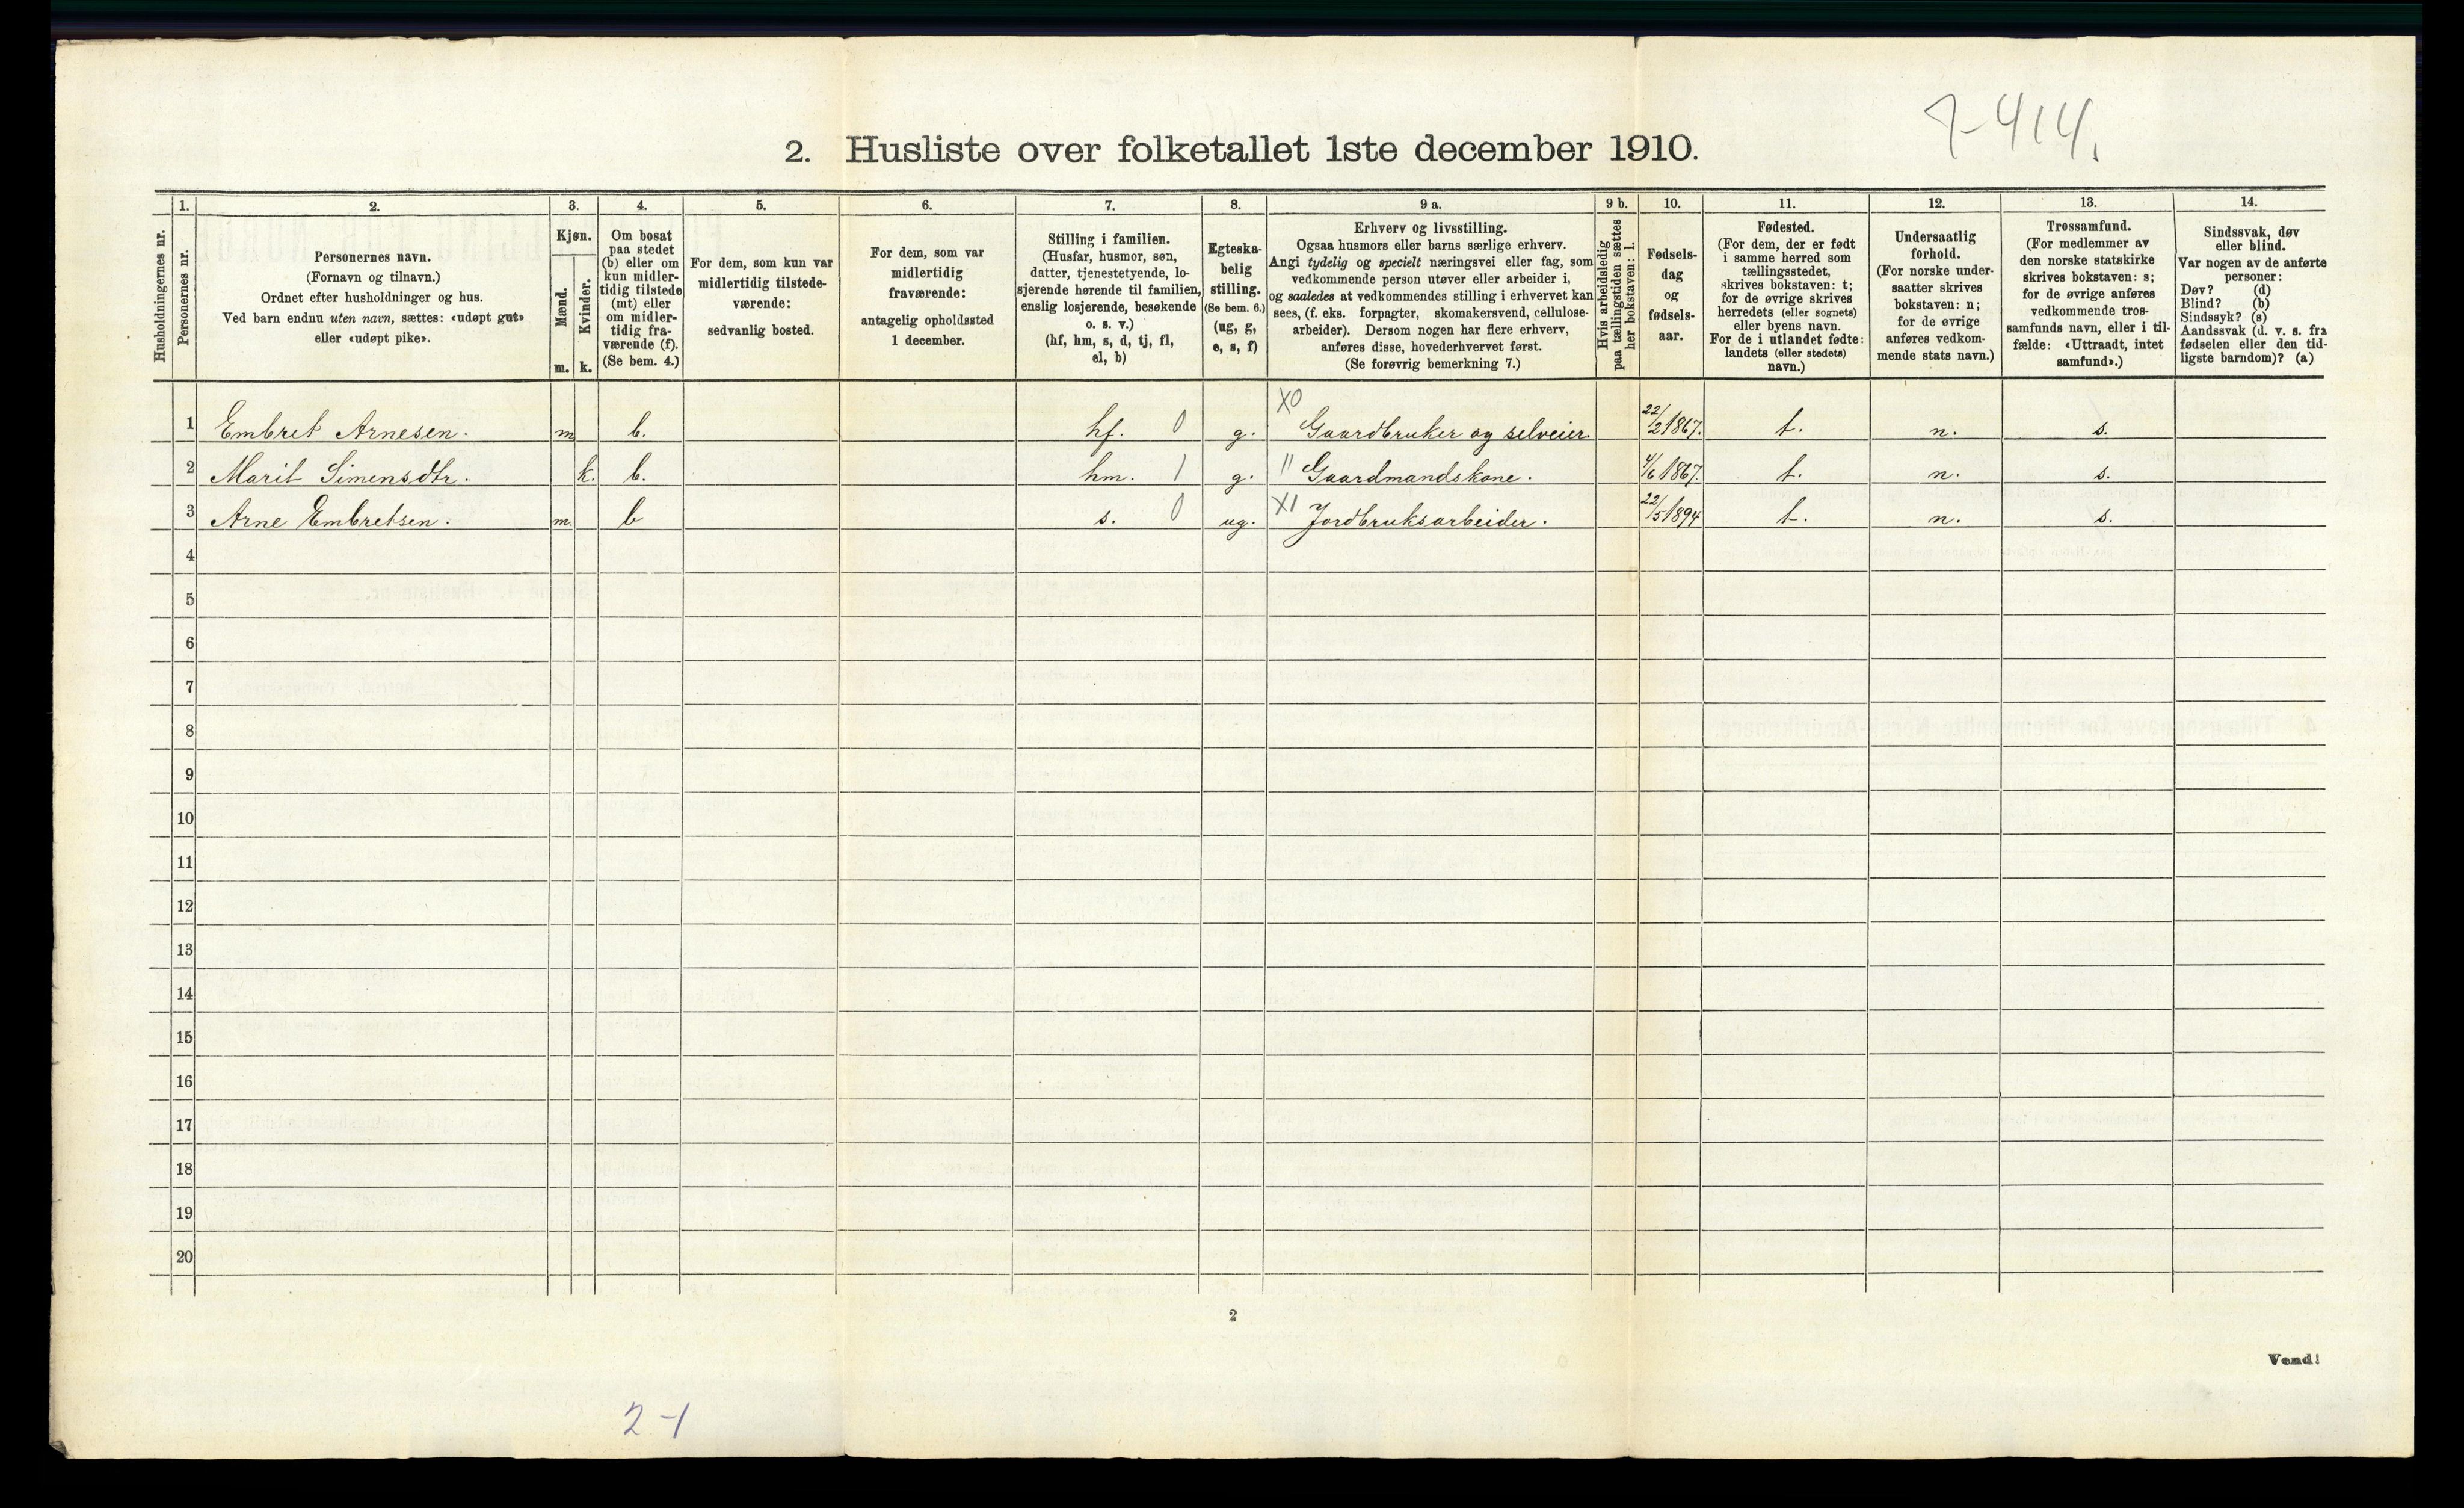 7-414.
2. Husliste over folketallet 1ste december 1910.
Husholdningernes nr.
1.
Personernes nr.
2.
Personernes navn.
(Fornavn og tilnavn.)
Ordnet efter husholdninger og hus.
Ved barn endnu uten navn, sættes: «udøpt gut»
eller «udøpt pike».
3.
Kjøn.
Mænd.
Kvinder.
m. k.
4.
Om bosat
paa stedet
(b) eller om
kun midler-
tidig tilstede
(mt) eller
om midler-
tidig fra-
værende (f).
(Se bem. 4.)
5.
For dem, som kun var
midlertidig tilstede-
værende:
sedvanlig bosted.
6.
For dem, som var
midlertidig
fraværende:
antagelig opholdssted
1 december.
7.
Stilling i familien.
(Husfar, husmor, søn,
datter, tjenestetyende, lo-
sjerende hørende til familien,
enslig losjerende, besøkende
o. s. v.)
(hf, hm, s, d, tj, fl,
el, b)
8.
Egteska-
belig
stilling.
(Se bem. 6.)
(ug, g,
e, s, f)
9 a.
Erhverv og livsstilling.
Ogsaa husmors eller barns særlige erhverv.
Angi tydelig og specielt næringsvei eller fag, som
vedkommende person utøver eller arbeider i,
og saaledes at vedkommendes stilling i erhvervet kan
sees, (f. eks. forpagter, skomakersvend, cellulose-
arbeider). Dersom nogen har flere erhverv,
anføres disse, hovederhvervet først.
(Se forøvrig bemerkning 7.)
9 b.
Hvis arbeidsledig
paa tællingstiden sættes
her bokstaven: l.
10.
Fødsels-
dag
og
fødsels-
aar.
11.
Fødested.
(For dem, der er født
i samme herred som
tællingsstedet,
skrives bokstaven: t;
for de øvrige skrives
herredets (eller sognets)
eller byens navn.
For de i utlandet fødte:
landets (eller stedets)
navn.)
12.
Undersaatlig
forhold.
(For norske under-
saatter skrives
bokstaven: n;
for de øvrige
anføres vedkom-
mende stats navn.)
13.
Trossamfund.
(For medlemmer av
den norske statskirke
skrives bokstaven: s;
for de øvrige anføres
vedkommende tros-
samfunds navn, eller i til-
fælde: «Uttraadt, intet
samfund».)
14.
Sindssvak, døv
eller blind.
Var nogen av de anførte
personer:
Døv? (d)
Blind? (b)
Sindssyk? (s)
Aandssvak (d. v. s. fra
fødselen eller den tid-
ligste barndom)? (a)
1 Embret Arnesen. m b. hf. 0 g. X0 Gaardbruker og selveier 22/2 1867. t. n. s.
2 Marit Simensdtr. k. b. hm. 1 g. " Gaardmandskone. 4/6 1867. t. n. s.
3 Arne Embretsen. m. b s. 0 ug. X1 Jordbruksarbeider. 22/5 1894 t. n. s.
4
5
6
7
8
9
10
11
12
13
14
15
16
17
18
19
20
2
Vend!
2-1